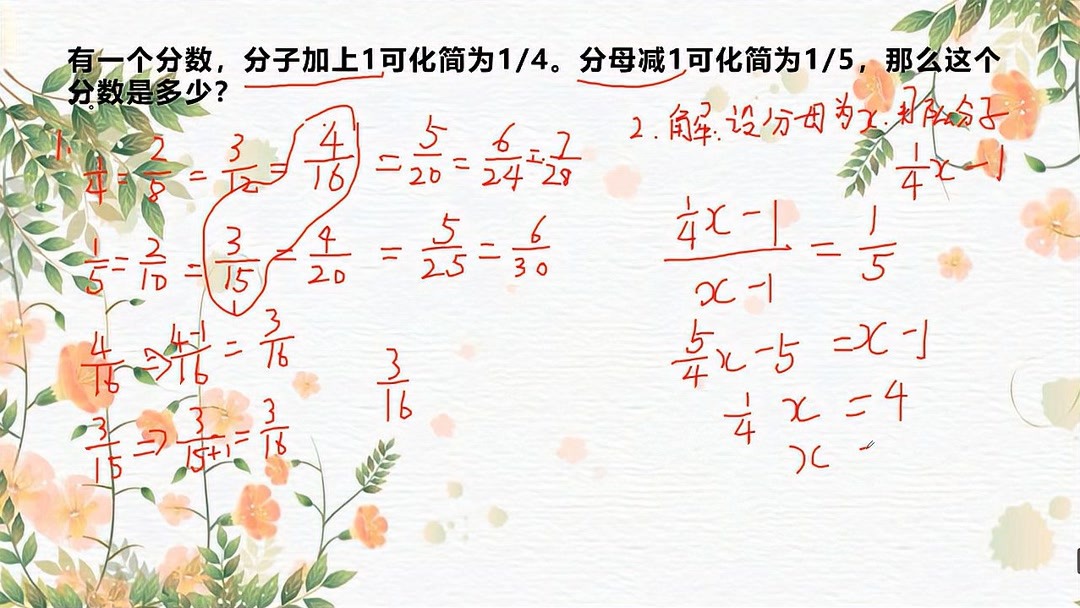 有一个分数，分子加上1可化简为1/4。分母减1可化简为1/5，那么这个
分数是多少？
1. 1/4 = 2/8 = 3/12 = 4/16 = 5/20 = 6/24 = 7/28
1/5 = 2/10 = 3/15 = 4/20 = 5/25 = 6/30
4/16 => 4-1/16 = 3/16
3/15 => 3/15+1 = 3/16
3/16
2. 解: 设分母为x. 那么分子
1/4x-1
1/4x-1/x-1 = 1/5
5/4x-5 = x-1
1/4 x = 4
x =